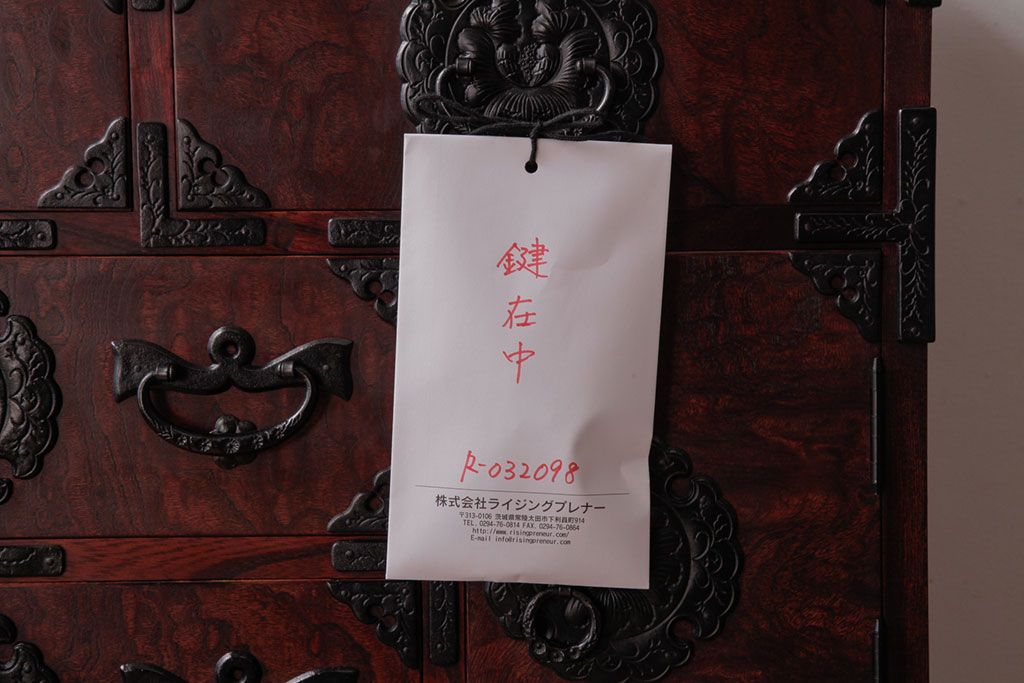 鍵在中
R-032098
株式会社ライジングプレナー
〒313-0106 茨城県常陸太田市下利員町914
TEL. 0294-76-0814 FAX. 0294-76-0864
http://www.risingpreneur.com/
E-mail info@risingpreneur.com